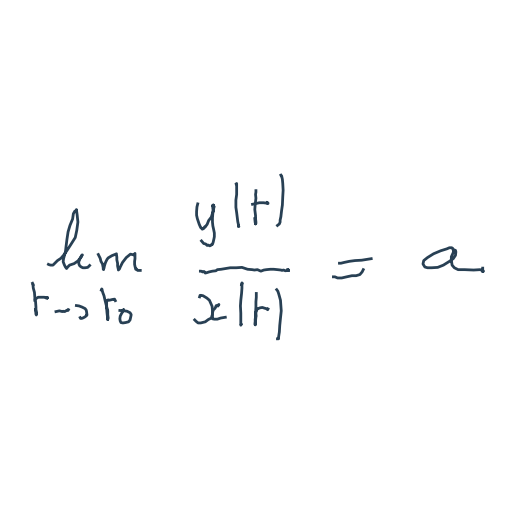 lim_{t→t₀} y(t)/x(t) = a